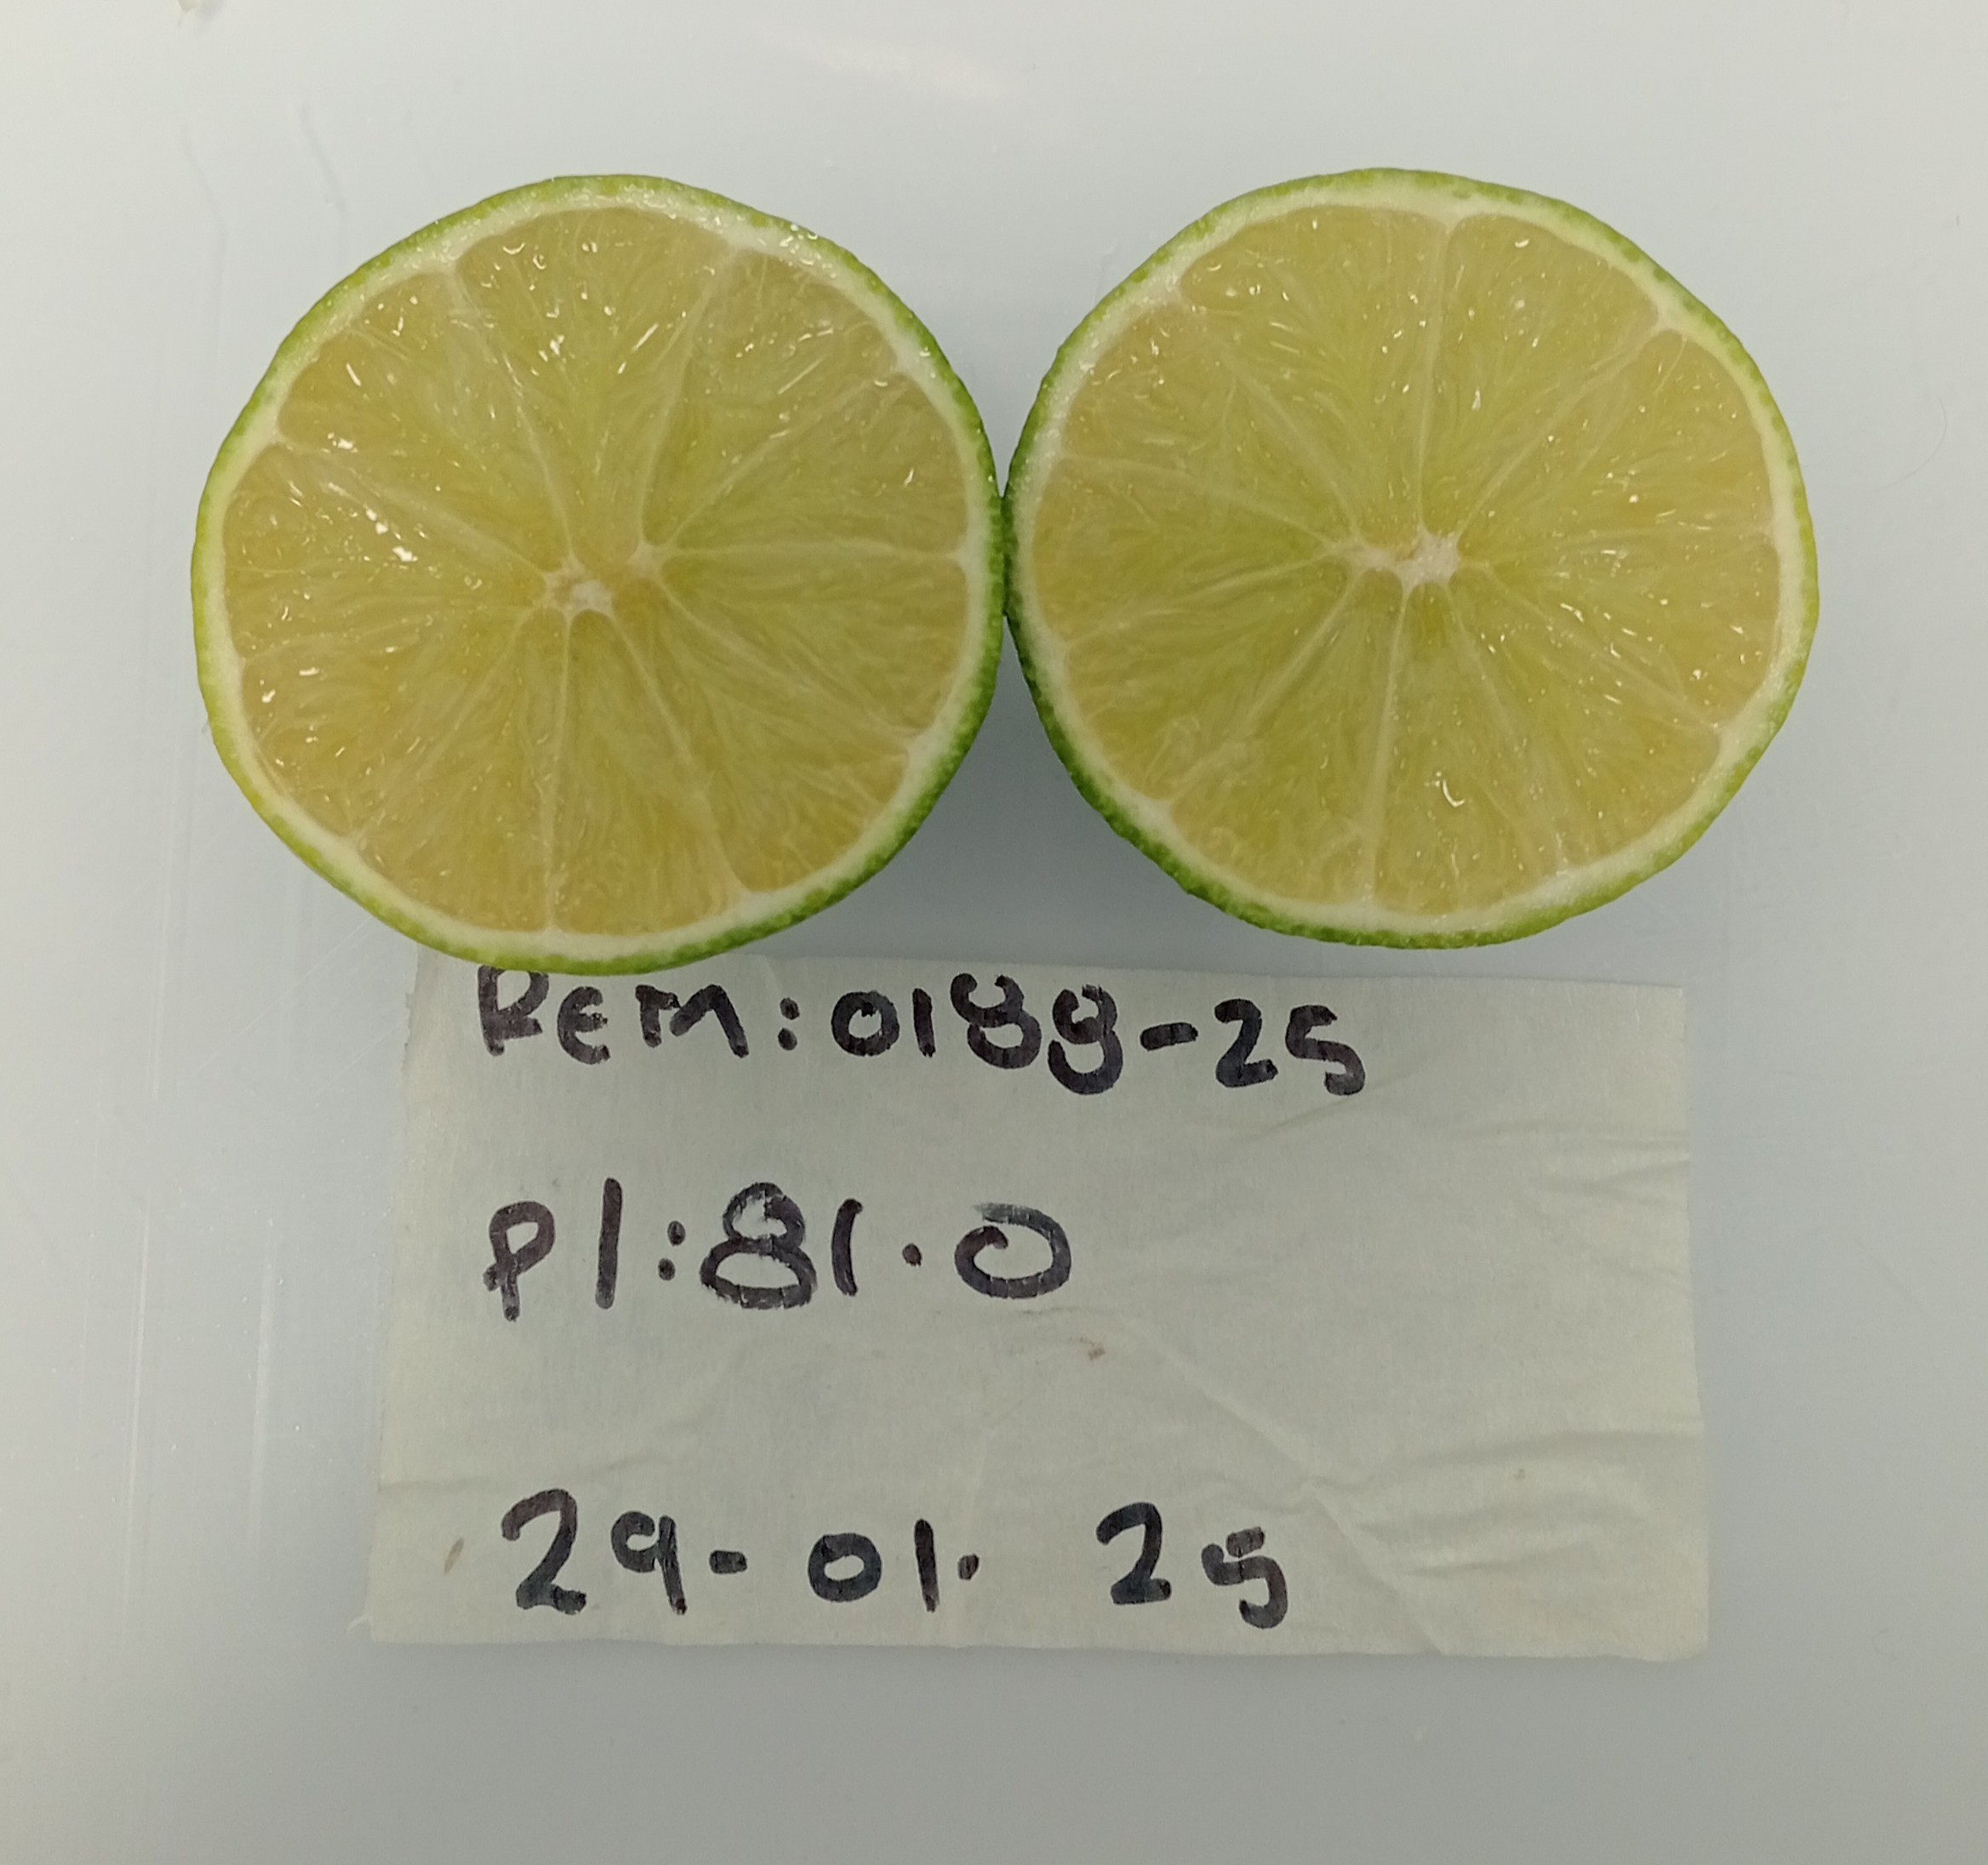 REM:0188-25
Pl:81.0
29-01. 25